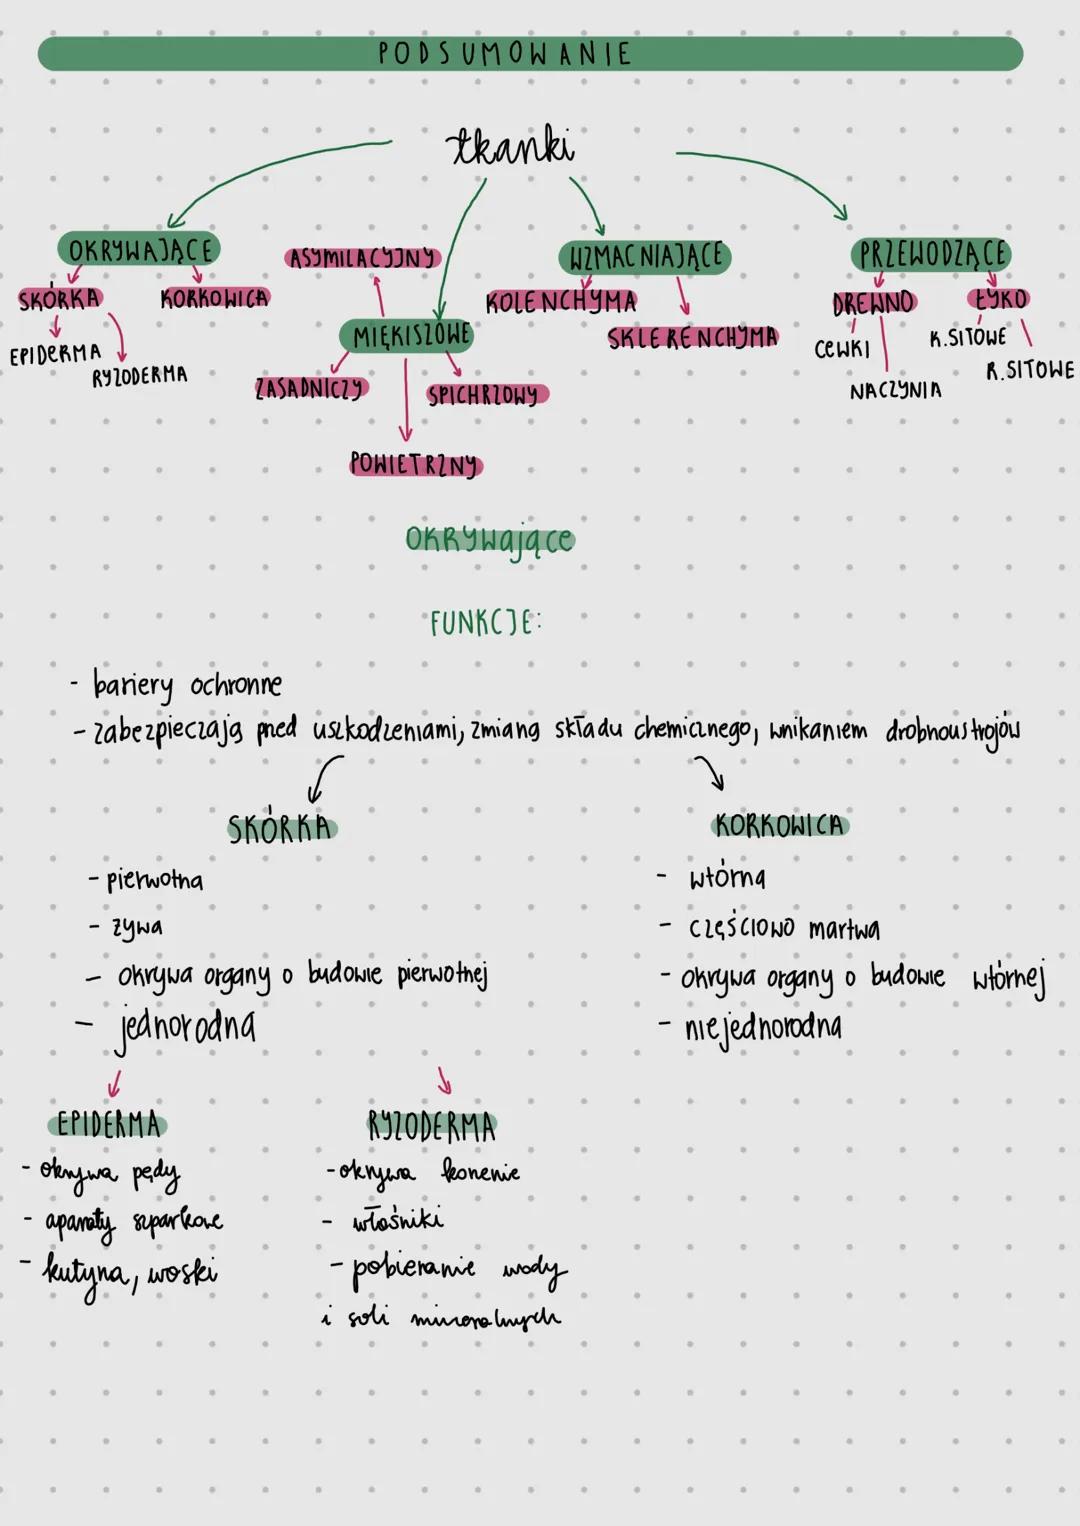 PODSUMOWANIE
tkanki
OKRYWAJĄCE
SKÓRKA
KORKOWICA
EPIDERMA
RYZODERMA
ASYMILACYJNY
MIĘKISZOWE
ZASADNICZY
SPICHRZOWY
POWIETRZNY
WZMACNIAJĄCE
KOLENCHYMA
SKLERENCHYMA
PRZEWODZĄCE
DREWNO
ŁYKO
CEWKI
NACZYNIA
K.SITOWE
R.SITOWE
OKRYWające
FUNKCJE:
- bariery ochronne
- zabezpieczają przed uszkodzeniami, zmianą składu chemicznego, wnikaniem drobnoustrojów
SKÓRKA
- pierwotna
- żywa
- okrywa organy o budowie pierwotnej
- jednorodna
KORKOWICA
- wtórna
- częściowo martwa
- okrywa organy o budowie wtórnej
- niejednorodna
EPIDERMA
- okrywa pędy
- aparaty szparkowe
- kutyna, woski
RYZODERMA
- okrywa korzenie
- włośniki
- pobieranie wody
i soli mineralnych